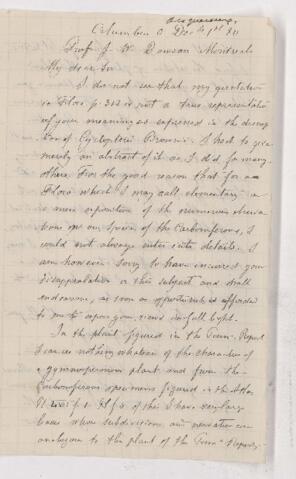 Columbus O Dec 1st 80
Prof J W Dawson Montreal
My dear Sir
I do not see that my quotation
in Flora p. 312 is not a true representation
of your meaning as expressed in the descrip
tion of Cyclopteris Brownii. I had to give
merely an abstract of it as I did for many
others for the good reason that for a
Flora which I may call elementary or
a mere exposition of the numerous observa
tions on our Species of the Carboniferous, I
could not always enter into details. I
am however sorry to have incurred your
disapprobation on this subject and shall
endeavor, as soon as opportunity is afforded
to me to expose your views in full light.
In the plant figured in the Report
I can see nothing whatever of the character of
a gymnospermous plant and from the
Carboniferous specimens figured in the Atlas
Pl f 1 of this I have very large
leaves whose subdivision and nervation are
analogous to the plant of the Report,